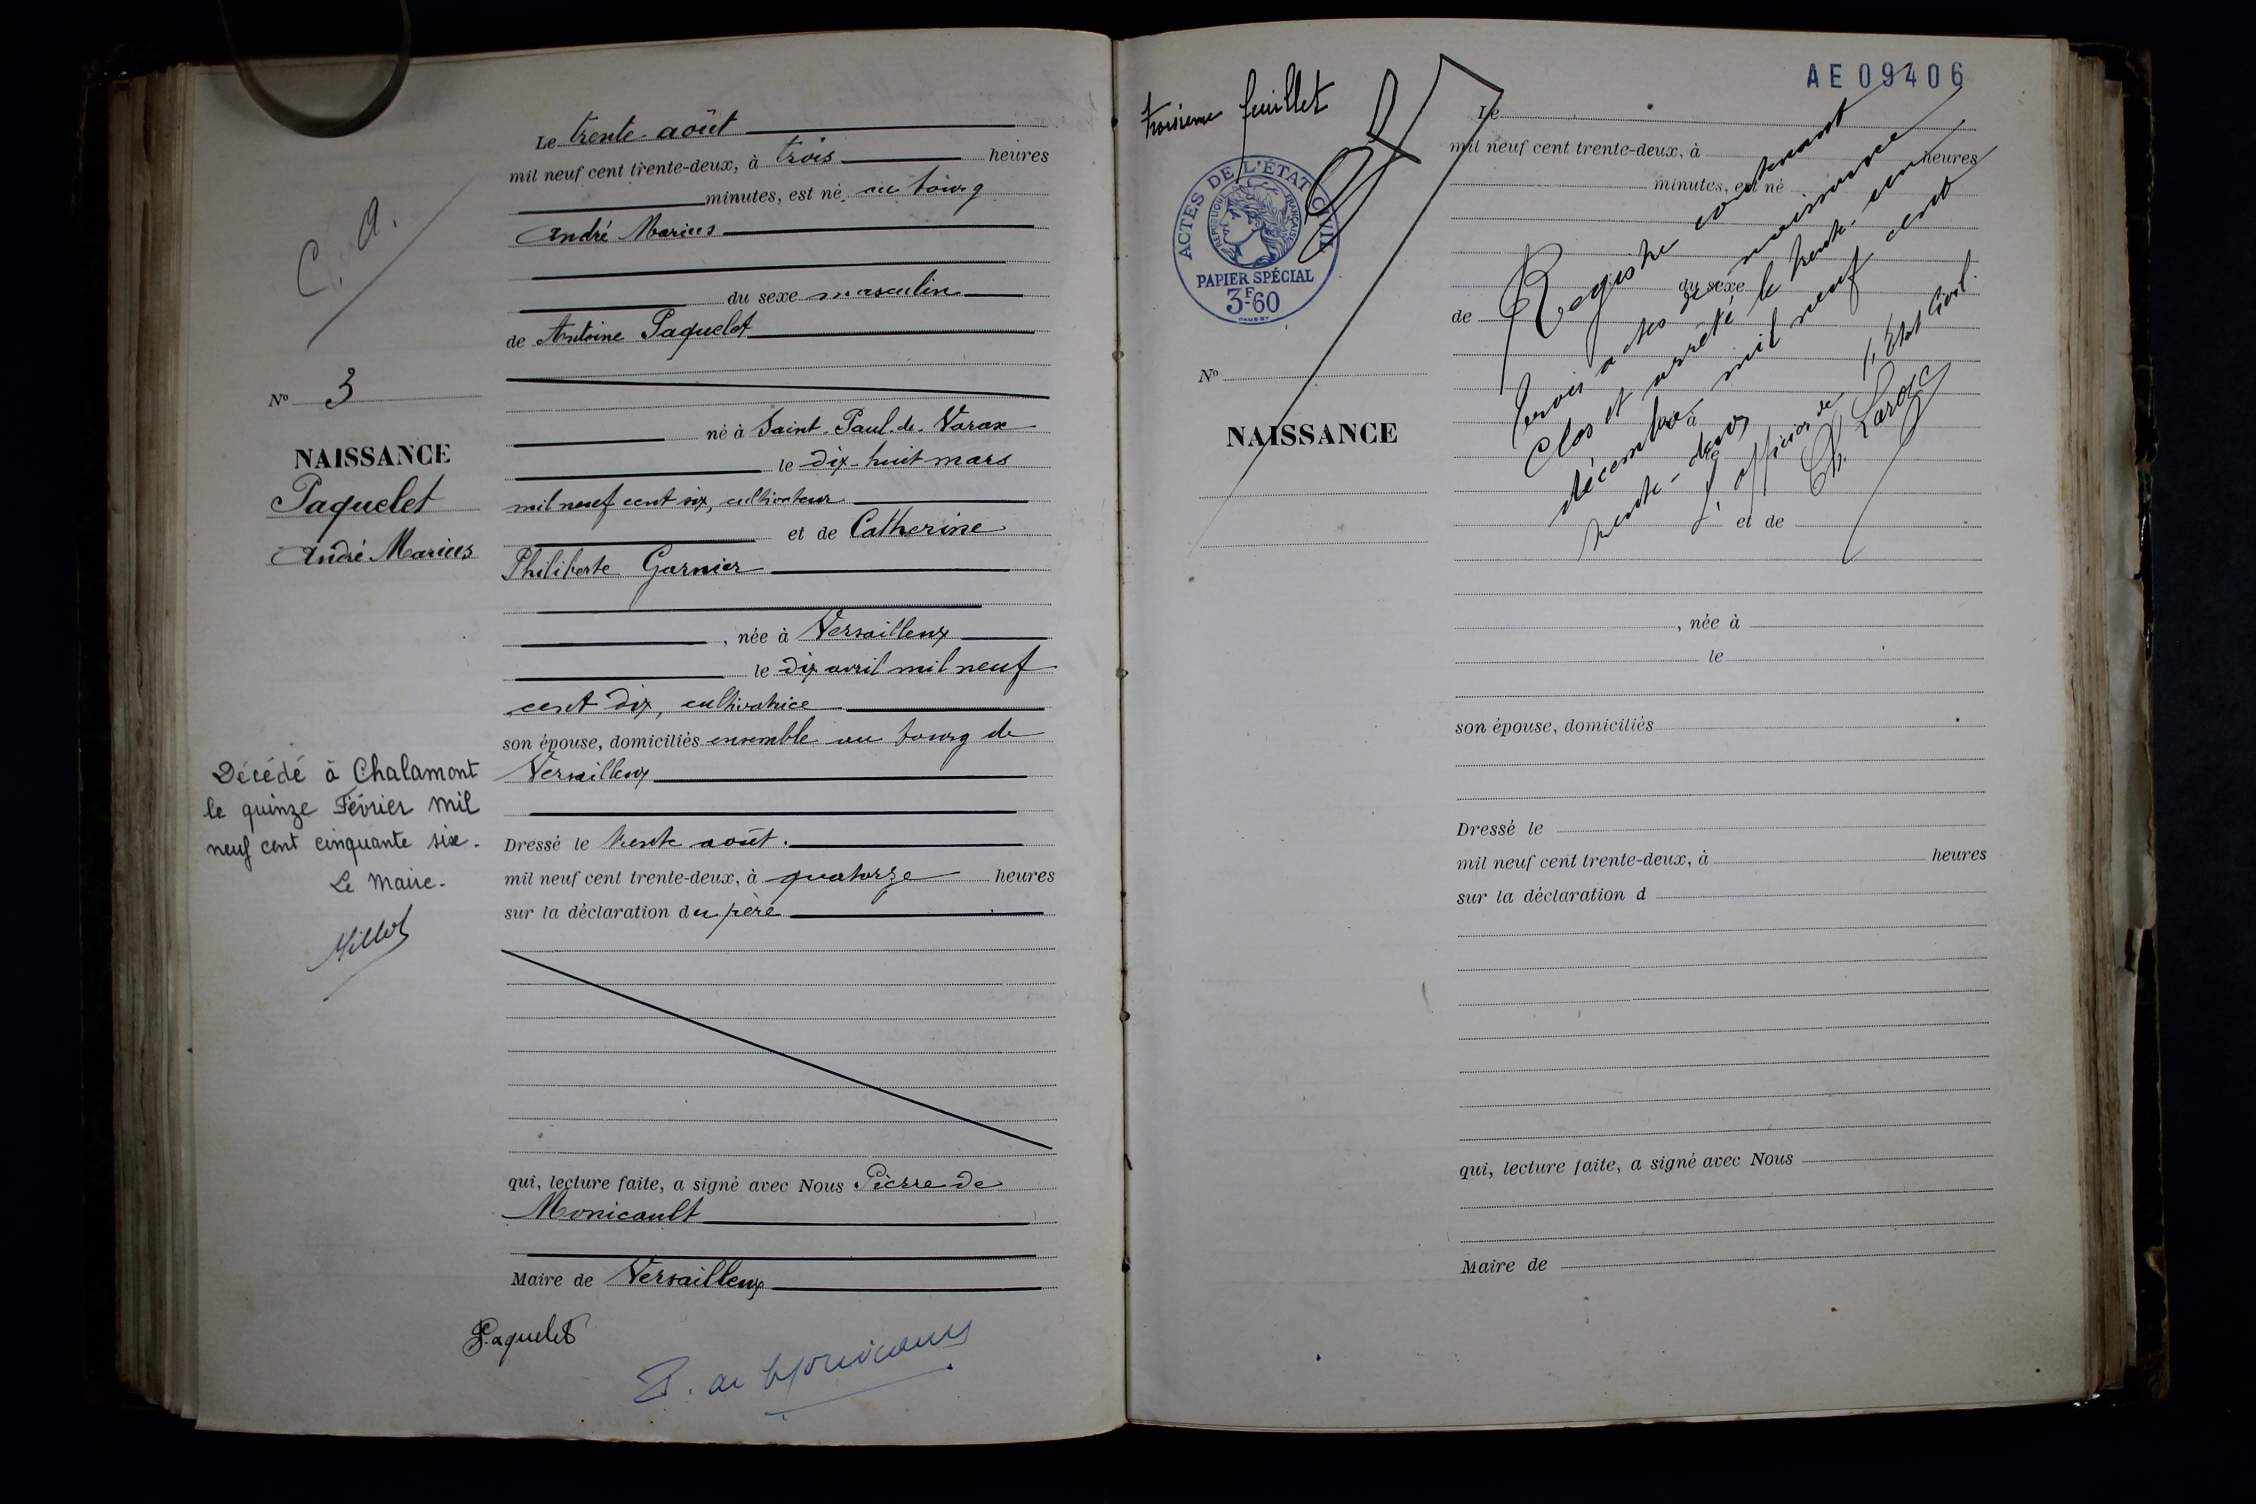 Le trente août
mil neuf cent trente-deux, à trois heures
minutes, est né au bourg
André Marius
du sexe masculin
de Antoine Paquelet
né à Saint-Paul-de-Varax
le dix-huit mars
mil neuf cent six, cultivateur
et de Catherine
Philiberte Garnier
, née à Versailleux
le dix avril mil neuf
cent dix, cultivatrice
son épouse, domiciliés ensemble au bourg de
Versailleux
Dressé le trente août.
mil neuf cent trente-deux, à quatorze heures
sur la déclaration du père
qui, lecture faite, a signé avec Nous Pierre de
Monicault
Maire de Versailleux
Paquelet
P. de Monicault
C. A.
No 3
NAISSANCE
Paquelet
André Marius
Décédé à Chalamont
le quinze Février mil
neuf cent cinquante six.
Le Maire.
Millot
troisième feuillet
AE 09406
ACTES DE L'ÉTAT CIVIL
RÉPUBLIQUE FRANÇAISE
PAPIER SPÉCIAL
3F60
No
NAISSANCE
Le
mil neuf cent trente-deux, à heures
minutes, est né
du sexe
de
à
le
et de
, née à
le
son épouse, domiciliés
Dressé le
mil neuf cent trente-deux, à heures
sur la déclaration d
qui, lecture faite, a signé avec Nous
Maire de
Registre contenant
trois actes de naissance
Clos et arrêté le trente-un
décembre mil neuf cent
trente-deux
L'officier de l'Etat Civil.